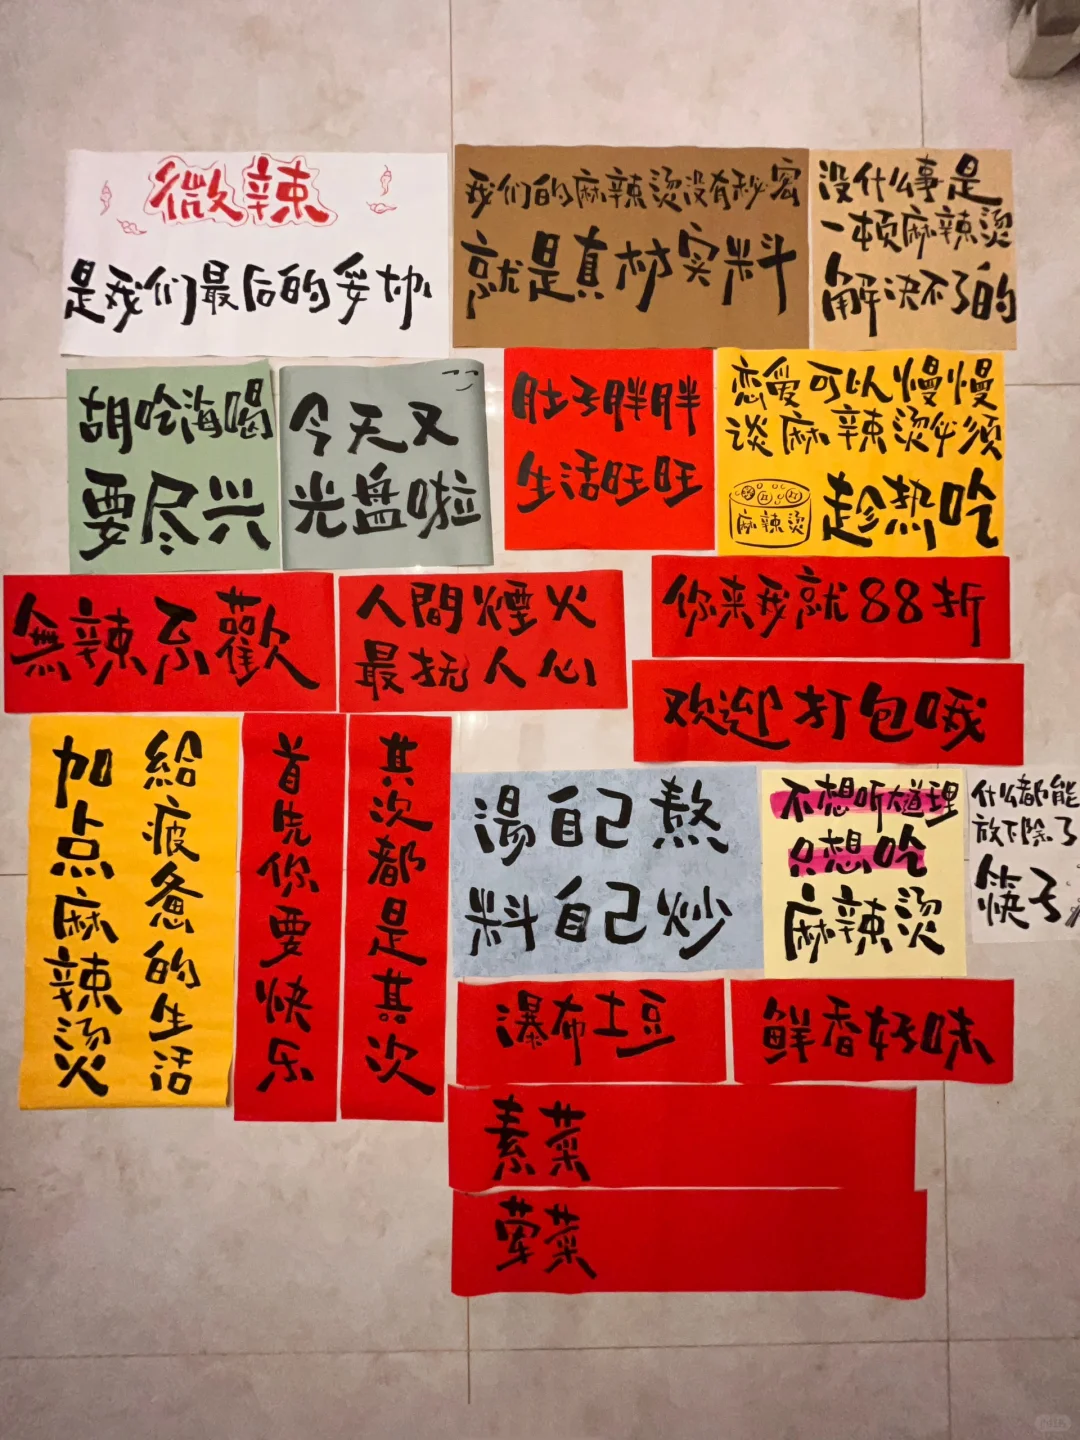 微辣
是我们最后的妥协
我们的麻辣烫没有秘密
就是真材实料
没什么事是
一顿麻辣烫
解决不了的
胡吃海喝
要尽兴
今天又
光盘啦
肚子胖胖
生活旺旺
恋爱可以慢慢
谈麻辣烫必须
趁热吃
麻辣烫
無辣不歡
人間煙火
最抚人心
你来我就88折
欢迎打包哦
給疲惫的生活
加点麻辣烫
首先你要快乐
其次都是其次
湯自己熬
料自己炒
不想听大道理
只想吃
麻辣烫
什么都能
放下除了
筷子
瀑布土豆
鲜香好味
素菜
荤菜